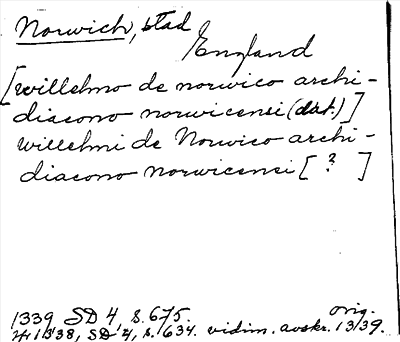 Norwich, stad
England
[willelmo de norwico archi-
diacono norwicensi (dat.)]
willelmi de Norwico archi-
diacono norwicensi [ ? ]
1339 SD 4, s. 675. orig.
1338, SD 4, s. 634. vidim. avskr. 13/39.